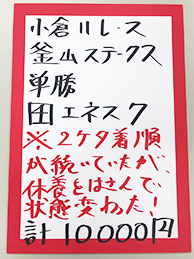 小倉11レース
釜山ステークス
単勝
田エネスク
※2ケタ着順
が続いていたが、
休養をはさんで
状態変わった！
計10000円